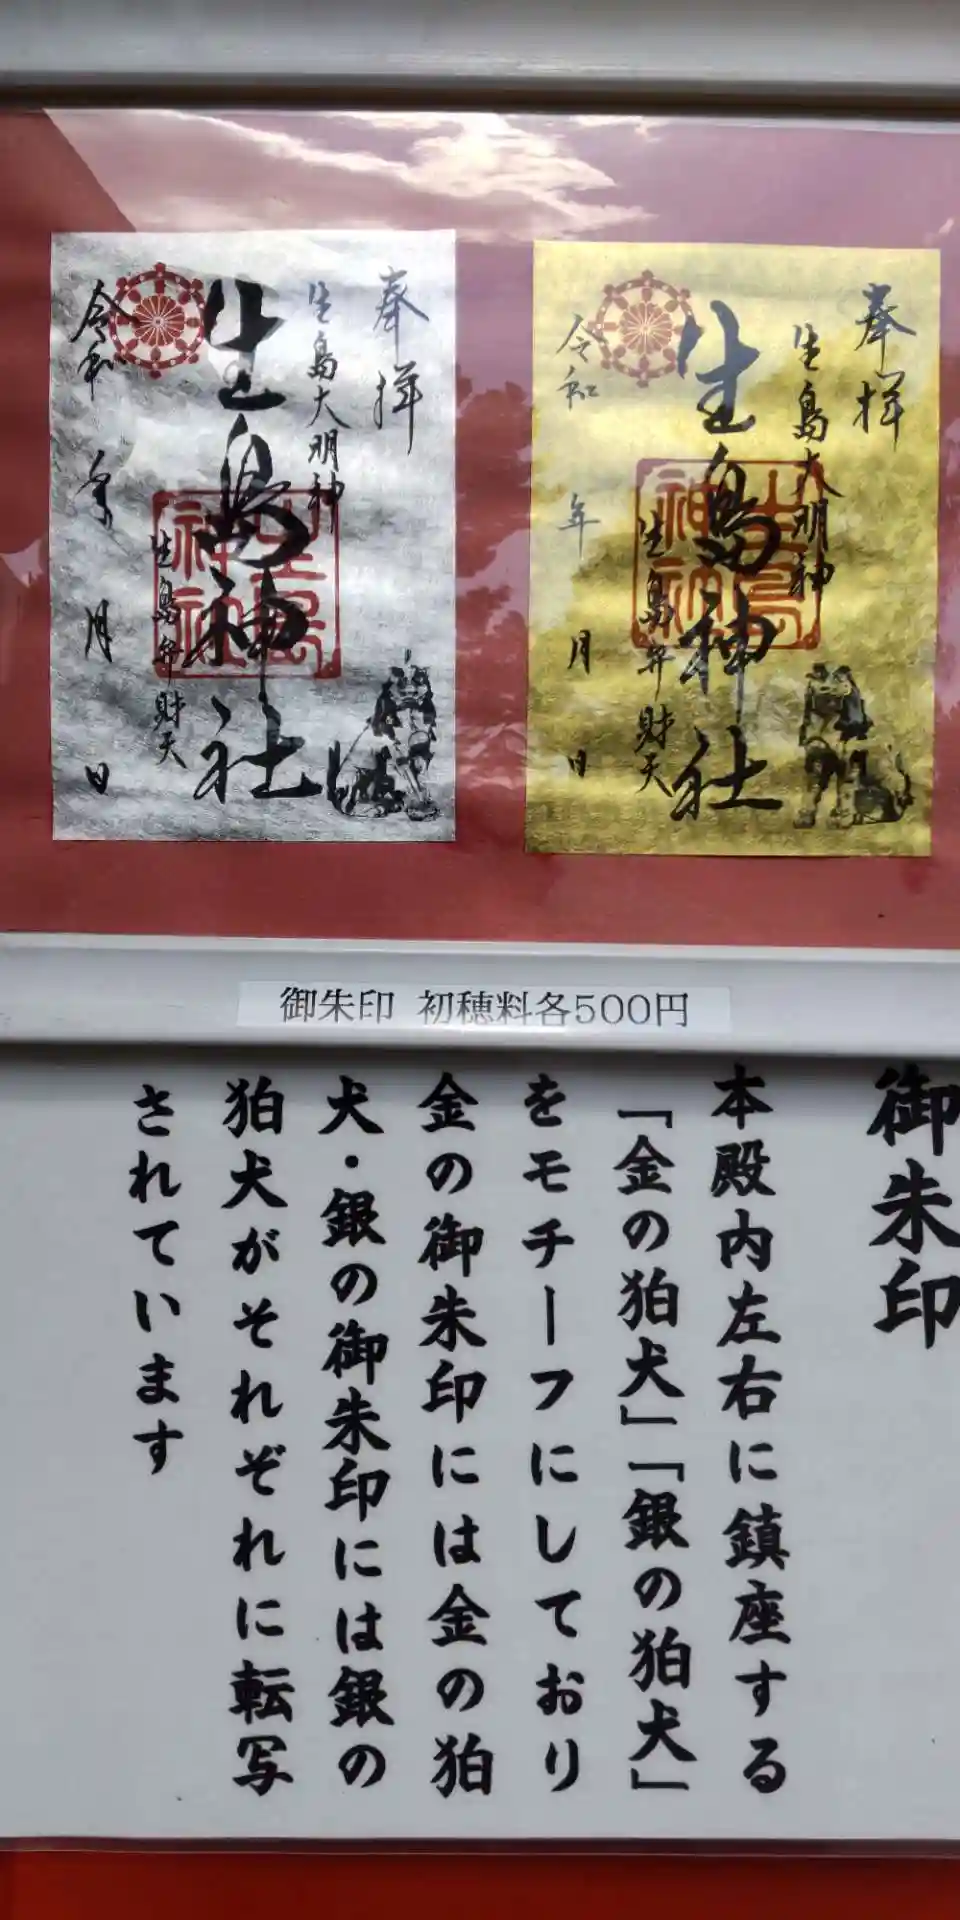 奉拝
生島大明神
生島神社
生島弁財天
令和 年 月 日
生島神社
奉拝
生島大明神
生島神社
生島弁財天
令和 年 月 日
生島神社
御朱印 初穂料各500円
御朱印
本殿内左右に鎮座する
「金の狛犬」「銀の狛犬」
をモチーフにしており
金の御朱印には金の狛
犬・銀の御朱印には銀の
狛犬がそれぞれに転写
されています